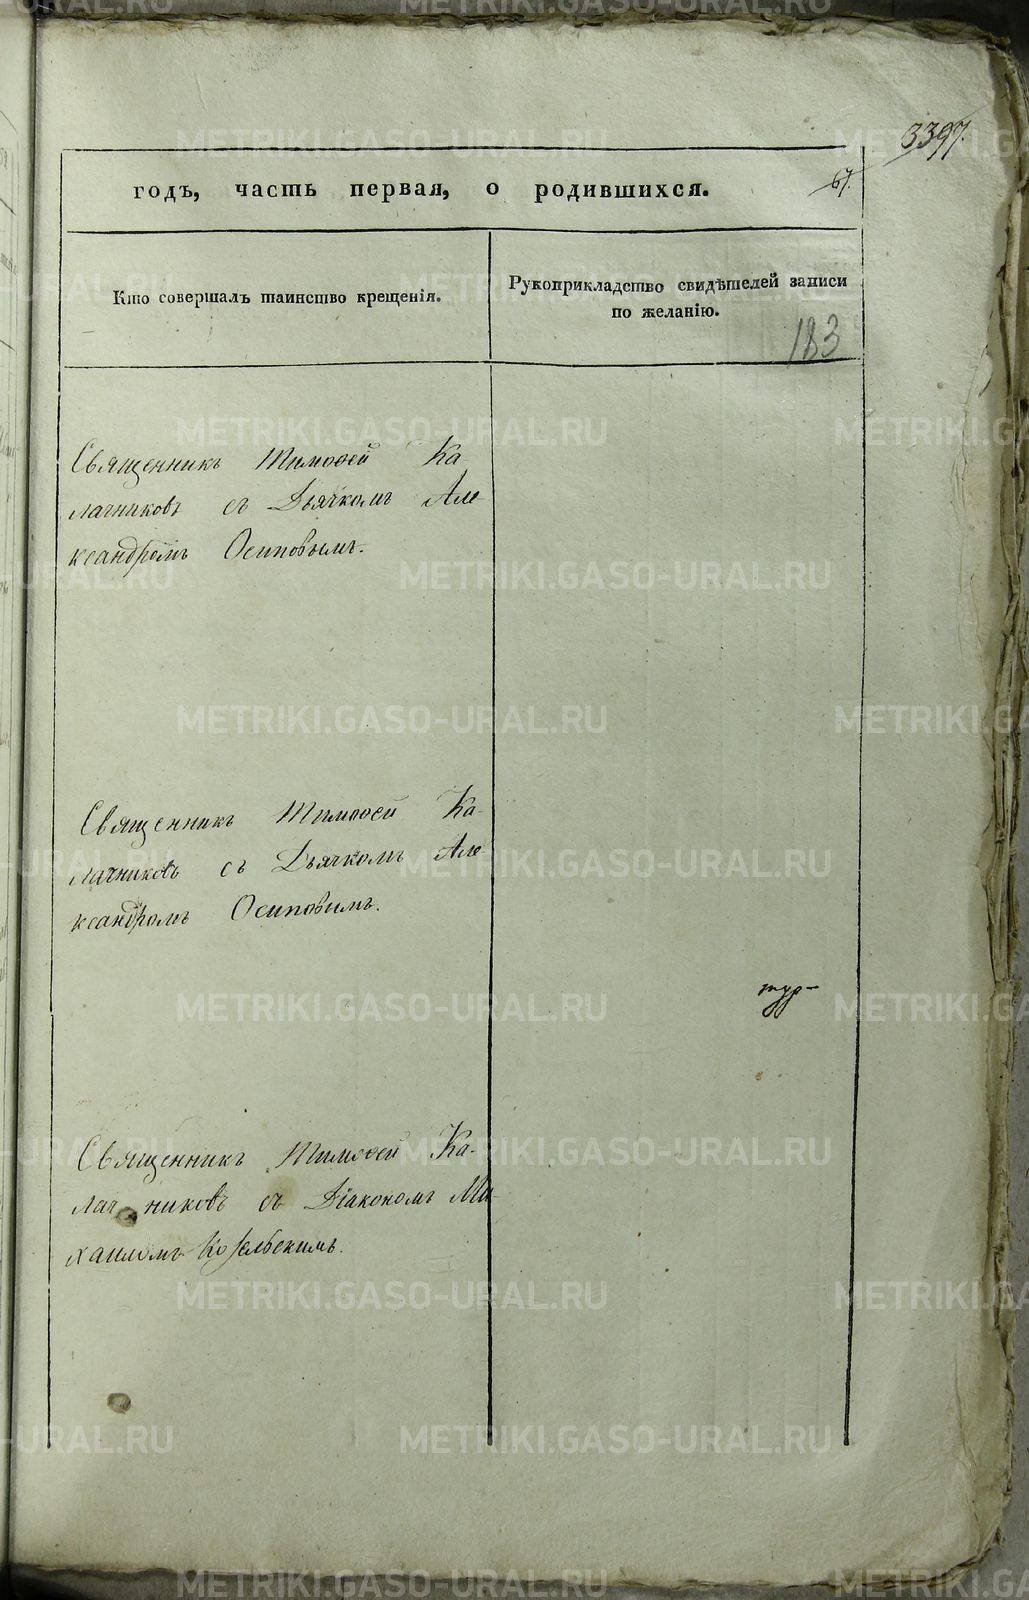 3397.
годъ, часть первая, о родившихся.
67.
Кто совершалъ таинство крещенія.
Рукоприкладство свидѣтелей записи
по желанію.
183
Священникъ Тимофей Ка-
лачниковъ съ Дьячкомъ Але-
ксандромъ Осиповымъ.
Священникъ Тимофей Ка-
лачниковъ съ Дьячкомъ Але-
ксандромъ Осиповымъ.
тур-
Священникъ Тимофей Ка-
лачниковъ съ Діакономъ Ми-
хаиломъ Козельскимъ.
METRIKI.GASO-URAL.RU